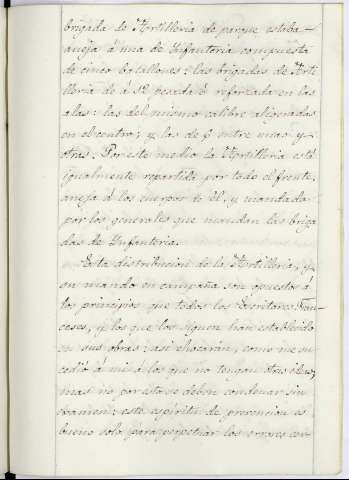 brigada de Artilleria de parque estaba
aneja á una de Infanteria compuesta
de cinco batallones: las brigadas de Arti
lleria de á 12 pesada ó reforzada en las
alas: las del mismo calibre aligeradas
en el centro; y las de 8 entre unas y
otras. Por este medio la Artilleria está
igualmente repartida por todo el frente,
aneja á los cuerpos de él, y mandada
por los generales que mandan las briga
das de Infanteria.
Esta distribucion de la Artilleria, y
su mando en campaña son opuestos á
los principios que todos los Escritores Fran-
ceses, y los que los siguen han establecido
en sus obras: asi chocarán, como me su
cedió á mi á los que no tengan otras ideas;
mas no por esto se deben condenar sin
examen: este espiritu de prevencion es
bueno solo para perpetuar los errores con